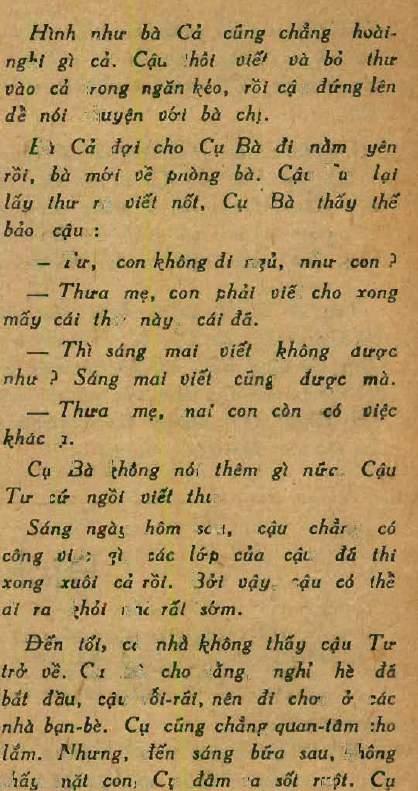 Hình như bà Cả cũng chẳng hoài-
nghi gì cả. Cậu thôi viết và bỏ thư
vào cả trong ngăn kéo, rồi cậ đứng lên
để nói chuyện với bà chị.
Bà Cả đợi cho Cụ Bà đi nằm yên
rồi, bà mới về phòng bà. Cậu Tư lại
lấy thư ra viết nốt, Cụ Bà thấy thế
bảo cậu :
— Tư, con không đi ngủ, như con ?
— Thưa mẹ, con phải viế cho xong
mấy cái thư này cái đã.
— Thì sáng mai viết không được
như ? Sáng mai viết cũng được mà.
— Thưa mẹ, mai con còn có việc
khác ạ.
Cụ Bà không nói thêm gì nữa. Cậu
Tư cứ ngồi viết thư
Sáng ngày hôm sau, cậu chẳng có
công việc gì các lớp của cậu đã thi
xong xuôi cả rồi. Bởi vậy, cậu có thể
ai ra khỏi nhà rất sớm.
Đến tối, cả nhà không thấy cậu Tư
trở về. Cụ Bà cho rằng nghỉ hè đã
bắt đầu, cậu rỗi-rãi, nên đi chơ ở các
nhà bạn-bè. Cụ cũng chẳng quan-tâm cho
lắm. Nhưng, đến sáng bữa sau, không
thấy mặt con, Cụ đâm ra sốt ruột. Cụ